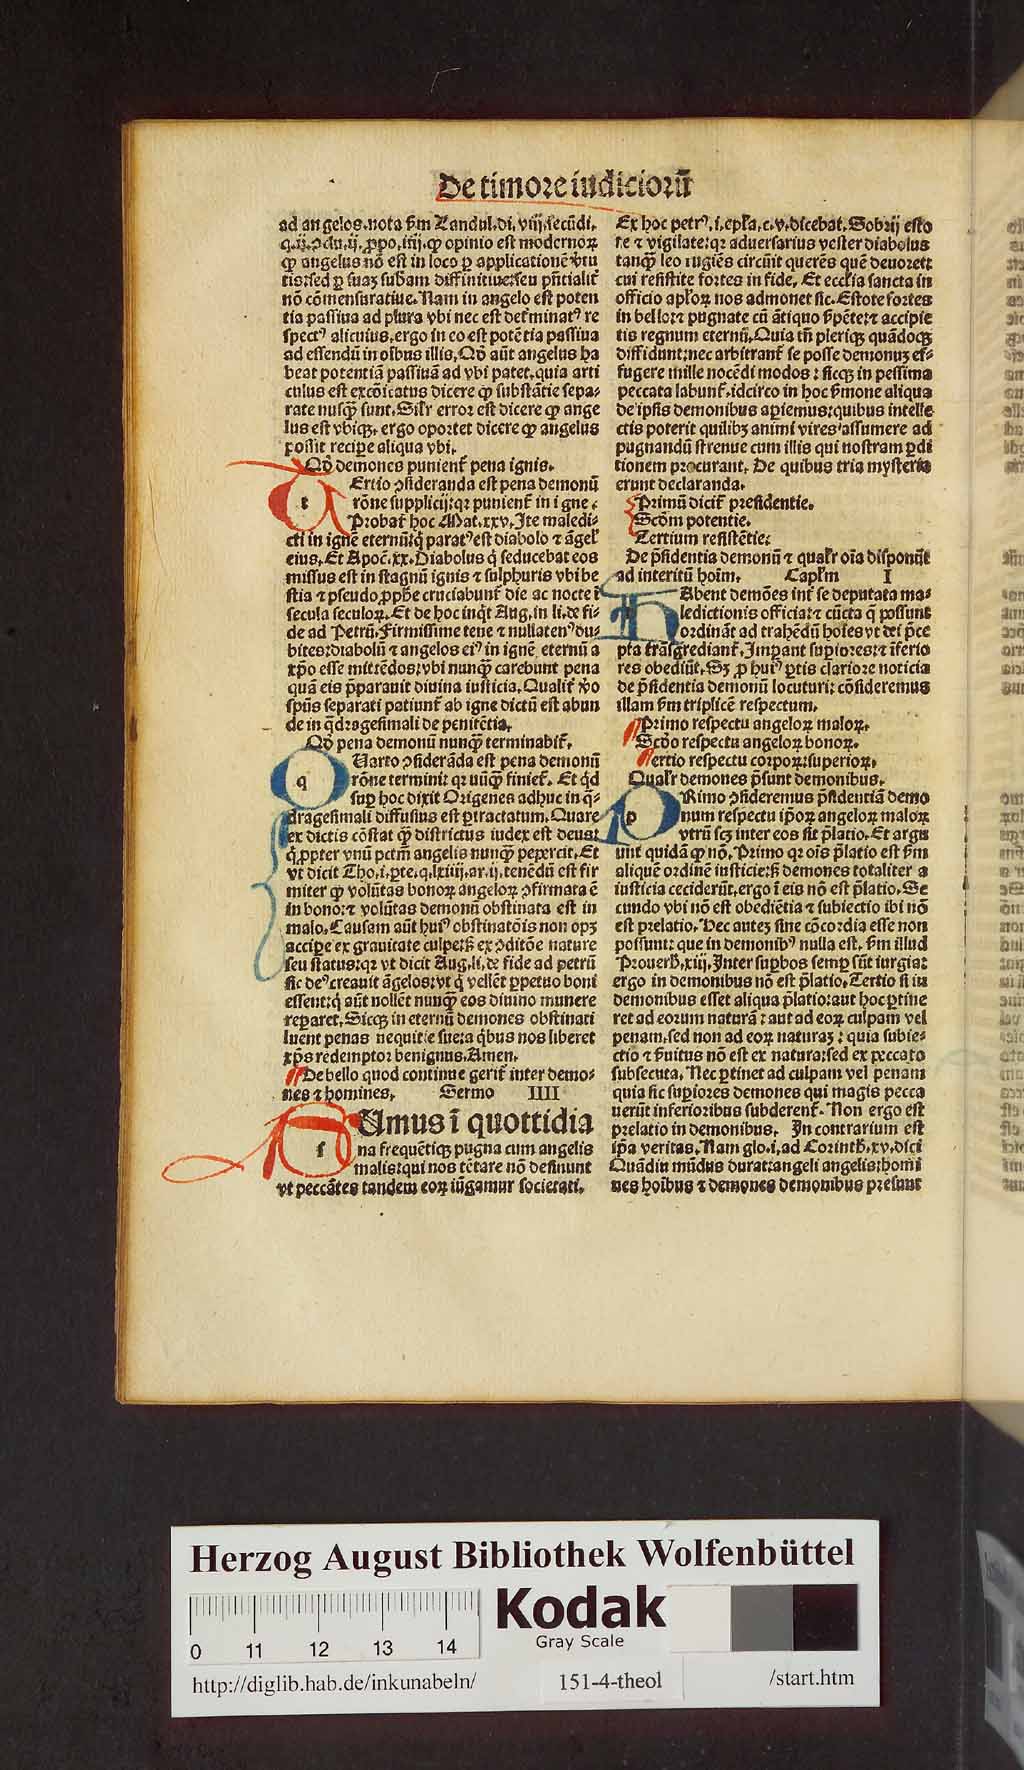 De timore iudiciorū
ad angelos. nota ẜm Landul. di. viij. secūdi.
q. ij. ꝯclu. ij. ꝓpo. iiij. ꝙ opinio est modernoꝝ
ꝙ angelus nō est in loco ꝑ applicationē v̓tu
tis: sed ꝑ suaꝫ subam̄ diffinitiue: seu pn̄tialit̓
nō cōmensuratiue. Nam in angelo est poten
tia passiua ad plura vbi nec est det̓minatꝰ re
spectꝰ alicuius. ergo in eo est potētia passiua
ad essendū in oībus illis. Qď aūt angelus ha
beat potentiā passiuā ad vbi patet. quia arti
culus est excōicatus dicere ꝙ substātie sepa-
rate nusꝙ̄ sunt. Silr̄ error est dicere ꝙ ange
lus est vbiqꝫ. ergo oportet dicere ꝙ angelus
possit recipe aliqua vbi.
Qď demones punient̓ pena ignis.
t Ertio ꝯsideranda est pena demonū
rōne supplicij: qꝛ punient̓ in igne.
Probat̓ hoc Mat. xxv. Ite maledi-
cti in ignē eternū: q̇ paratꝰ est diabolo ⁊ āgel̓
eius. Et Apoc̄. xx. Diabolus q̇ seducebat eos
missus est in stagnū ignis ⁊ sulphuris vbi be
stia ⁊ pseudo ꝓphē cruciabunt̓ die ac nocte ī
secula seculoꝝ. Et de hoc inq̇t Aug. in li. de fi-
de ad Petrū. Firmissime tene ⁊ nullatenꝰ du-
bites: diabolū ⁊ angelos eiꝰ in ignē eternū a
xp̄o esse mittēdos: vbi nunꝙ̄ carebunt pena
quā eis p̄parauit diuina iusticia. Qualit̓ v̓o
spūs separati patiunt̓ ab igne dictū est abun
de in q̇dragesimali de penitētia.
Qď pena demonū nunꝙ̄ terminabit̓.
q Uarto ꝯsiderāda est pena demonū
rōne termini: qꝛ nūꝙ̄ finiet̓. Et q̇d
suꝑ hoc dixit Origenes adhuc in q̇-
dragesimali diffusius est ꝑtractatum. Quare
ex dictis cōstat ꝙ districtus iudex est deus:
q̇ ꝓpter vnū pctm̄ angelis nunꝙ̄ pepercit. Et
vt dicit Tho. i. ꝑte. q. lxiiij. ar. ij. tenēdū est fir
miter ꝙ volūtas bonoꝝ angeloꝝ ꝯfirmata ē
in bono: ⁊ volūtas demonū obstinata est in
malo. Causam aūt huiꝰ obstinatōis non opꝫ
accipe ex grauitate culpe: ꝫ ex ꝯditōe nature
seu status: qꝛ vt dicit Aug. li. de fide ad petrū
sic deꝰ creauit āgelos: vt q̇ vellēt ꝑpetuo boni
essent: q̇ aūt nollēt nunꝙ̄ eos diuino munere
reparet. Sicqꝫ in eternū demones obstinati
luent penas nequitie sue: a q̇bus nos liberet
xp̄s redemptor benignus. Amen.
De bello quod continue gerit̓ inter demo-
nes ⁊ homines. Sermo IIII
f Umus ī quottidia
na frequētiqꝫ pugna cum angelis
malis: qui nos tētare nō desinunt
vt peccātes tandem eoꝝ iūgamur societati.
Ex hoc petrꝰ. i. epl̄a. c. v. dicebat. Sobrij esto
te ⁊ vigilate: qꝛ aduersarius vester diabolus
tanꝙ̄ leo rugiēs circuit querēs quē deuoret:
cui resistite fortes in fide. Et ecclīa sancta in
officio apl̄oꝝ nos admonet sic. Estote fortes
in bello: ⁊ pugnate cū ātiquo ẜpēte: ⁊ accipie
tis regnum eternū. Quia tn̄ pleriqꝫ quādoqꝫ
diffidunt: nec arbitrant̓ se posse demonuꝫ ef-
fugere mille nocēdi modos: sicqꝫ in pessima
peccata labunt̓. idcirco in hoc ẜmone aliqua
de ipsis demonibus aꝑiemus: quibus intelle
ctis poterit quilibꝫ animi vires assumere ad
pugnandū strenue cum illis qui nostram ꝑdi
tionem procurant. De quibus tria mysteria
erunt declaranda.
Primū dicit̓ presidentie.
Scd̄m potentie.
Tertium resistētie:
De p̄sidentia demonū ⁊ qualr̄ oīa disponūt
ad interitū hoīm. Caplm̄ I
h Abent demōes int̓ se deputata ma-
ledictionis officia: ⁊ cūcta q̄ possunt
ordināt ad trahēdū hoīes vt dei p̄ce
pta trāsgrediant̓. Imꝑant suꝑiores: ⁊ īferio
res obediūt. Sꝫ ꝓ huiꝰ ꝑtis clariore noticia
de p̄sidentia demonū locuturi: cōsideremus
illam ẜm triplicē respectum.
Primo respectu angeloꝝ maloꝝ.
Scd̄o respectu angeloꝝ bonoꝝ.
Tertio respectu corpoꝝ: superioꝝ.
Qualr̄ demones p̄sunt demonibus.
p Rimo ꝯsideremus p̄sidentiā demo
num respectu ip̄oꝝ angeloꝝ maloꝝ
vtrū scꝫ inter eos sit p̄latio. Et argu
unt quidā ꝙ nō. Primo qꝛ oīs p̄latio est ẜm
aliquē ordinē iusticie: ꝫ demones totaliter a
iusticia ceciderūt. ergo ī eis nō est p̄latio. Se
cundo vbi nō est obediētia ⁊ subiectio ibi nō
est prelatio. Hec auteꝫ sine cōcordia esse non
possunt: que in demonibꝰ nulla est. ẜm illud
Prouerb. xiij. Inter suꝑbos semꝑ sūt iurgia:
ergo in demonibus nō est p̄latio. Tertio si in
demonibus esset aliqua p̄latio: aut hoc ꝑtine
ret ad eorum naturā: aut ad eoꝝ culpam vel
penam. sed non ad eoꝝ naturaꝫ: quia subie-
ctio ⁊ ẜuitus nō est ex natura: sed ex peccato
subsecuta. Nec ꝑtinet ad culpam vel penam
quia sic suꝑiores demones qui magis pecca
uerūt inferioribus subderent̓. Non ergo est
prelatio in demonibus. In contrarium est
ip̄a veritas. Nam glo. i. ad Corinth. xv. dicit
Quādiu mūdus durat: angeli angelis: homī
nes hoībus ⁊ demones demonibus presunt
Herzog August Bibliothek Wolfenbüttel
Kodak
Gray Scale
0 11 12 13 14
http://diglib.hab.de/inkunabeln/ 151-4-theol /start.htm